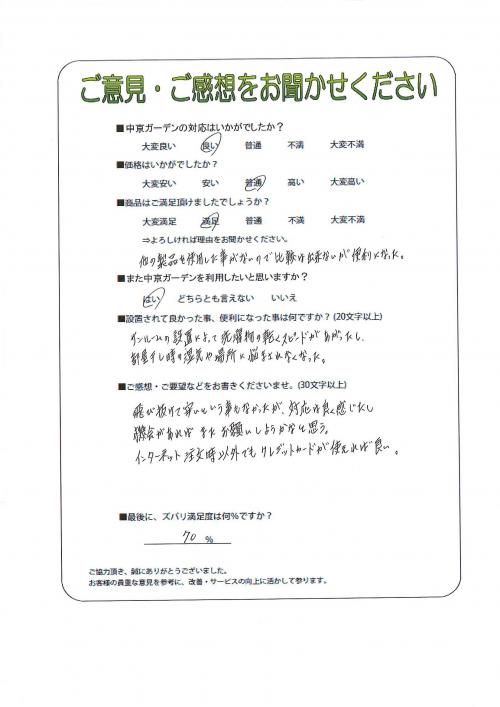 ご意見・ご感想をお聞かせください
■中京ガーデンの対応はいかがでしたか？
大変良い 良い 普通 不満 大変不満
■価格はいかがでしたか？
大変安い 安い 普通 高い 大変高い
■商品はご満足頂けましたでしょうか？
大変満足 満足 普通 不満 大変不満
⇒よろしければ理由をお聞かせください。
他の製品を使用した事がないので比較は出来ないが便利になった。
■また中京ガーデンを利用したいと思いますか？
はい どちらとも言えない いいえ
■設置されて良かった事、便利になった事は何ですか？(20文字以上)
の設置によって洗濯物の乾くスピードがあがったし、
部屋干し時の湿気や場所に悩まされなくなった。
■ご感想・ご要望などをお書きくださいませ。(30文字以上)
飛び抜けて安いという事もなかったが、対応は良く感じたし
機会があればまたお願いしようかなと思う。
インターネット注文時以外でもクレジットカードが使えれば良い。
■最後に、ズバリ満足度は何%ですか？
70 %
ご協力頂き、誠にありがとうございました。
お客様の貴重な意見を参考に、改善・サービスの向上に活かして参ります。